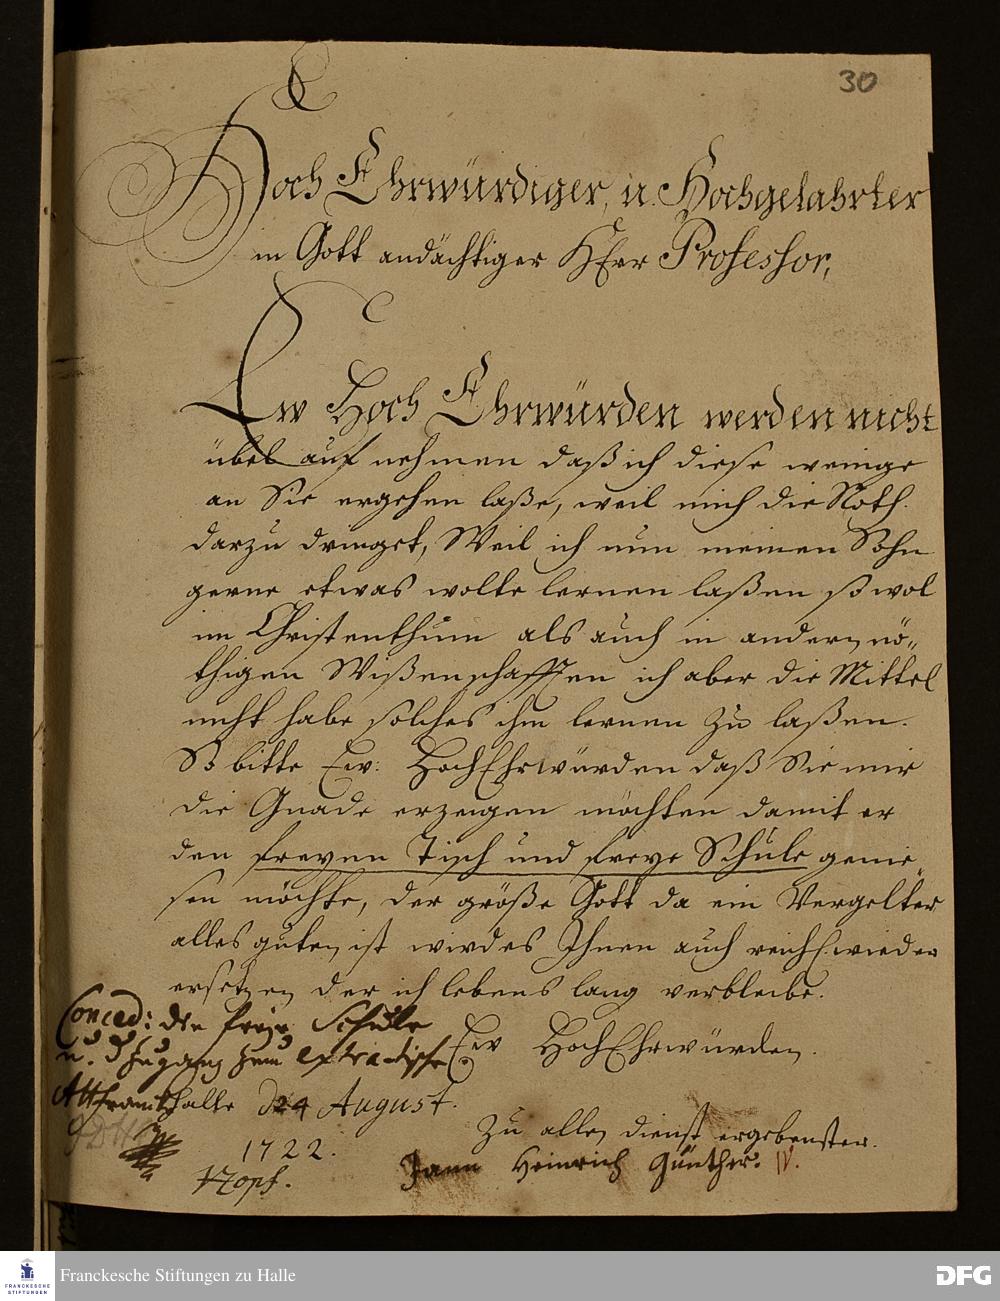 30
Hoch Ehrwürdiger, u. Hochgelahrter
in Gott andächtiger HErr Professor,
Ew Hoch Ehrwürden werden nicht
übel auf nehmen daß ich diese wenige
an Sie ergehen laße, weil mich die Noth
darzu dringet, Weil ich nun meinen Sohn
gerne etwas wolte lernen laßen so wol
im Christenthum als auch in andern nö„
thigen Wißenschafften ich aber die Mittel
nicht habe solches ihm lernen zu laßen.
So bitte Ew: HochEhrwürden daß Sie mir
die Gnade erzeigen möchten damit er
den freyen Tisch und freye Schule genie
sen möchte, der große Gott da ein Vergelter
alles guten ist wird es Ihnen auch reichl. wieder
ersetzen der ich lebens lang verbleibe.
Conced: die freye Schule
u. d. Zugang zum extra tische
Ew HochEhrwürden.
halle d 24 August.
1722.
Zu allen dienst ergebenster.
Hopf.
Jann Heinrich Günther. IV.
Franckesche Stiftungen zu Halle
FRANCKESCHE
STIFTUNGEN
DFG